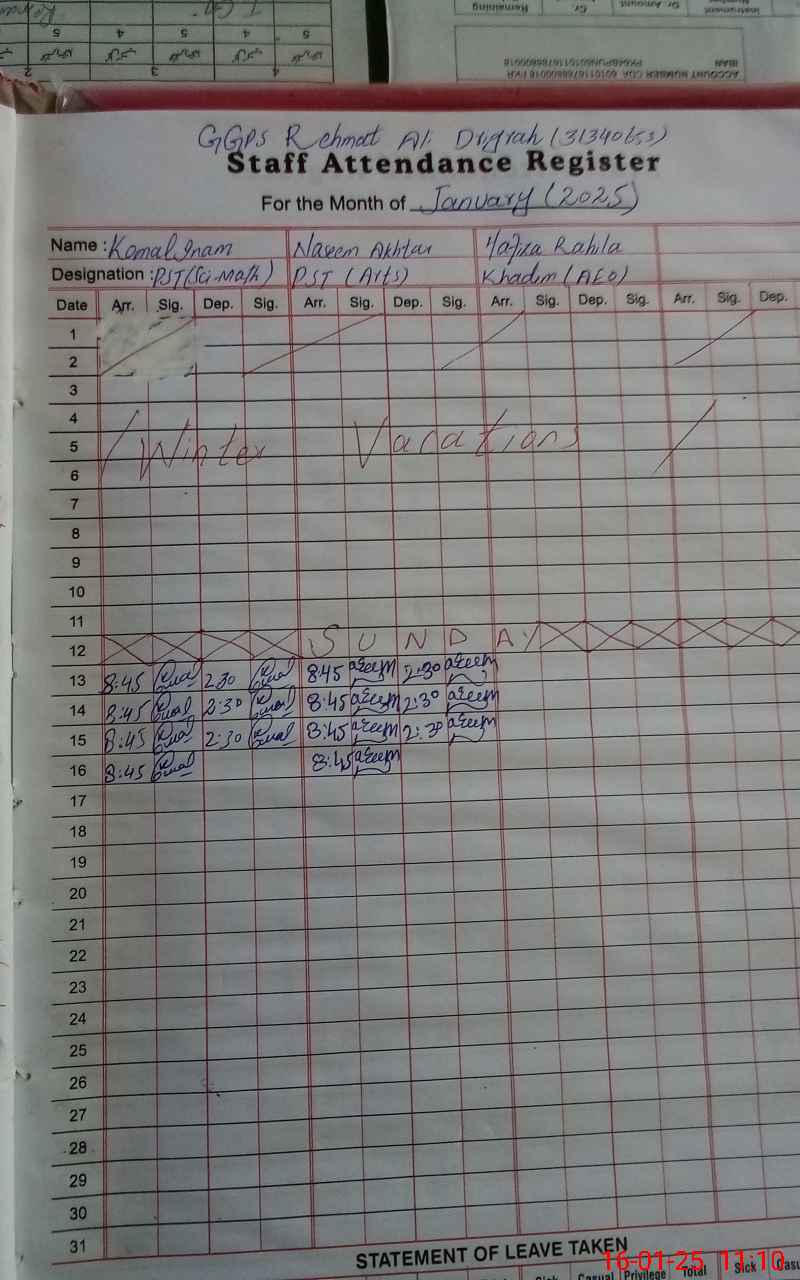 5 4 5 4 5
2 3 4
Remaining Cr. Cr Amount Instrument
ACCOUNT NUMBER CDA
IBAN
GGPS Rehmat Ali
Staff Attendance Register
For the Month of January (2025)
Name : Komal Inam Naseem Akhtar Hafiza Rahila
Designation : PST (Sci-Math) PST (Arts) Khadim (AEO)
Date Arr. Sig. Dep. Sig. Arr. Sig. Dep. Sig. Arr. Sig. Dep. Sig. Arr. Sig. Dep.
1
2
3
4
5 Winter Vacations
6
7
8
9
10
11
12 SUNDAY
13 8:45 Komal 2:30 Komal 8:45 Naseem 2:30 Naseem
14 8:45 Komal 2:30 Komal 8:45 Naseem 2:30 Naseem
15 8:45 Komal 2:30 Komal 8:45 Naseem 2:30 Naseem
16 8:45 Komal 8:45 Naseem
17
18
19
20
21
22
23
24
25
26
27
28
29
30
31
STATEMENT OF LEAVE TAKEN
16-01-25 11:10
Sick Casual Privilege Total Sick Casu